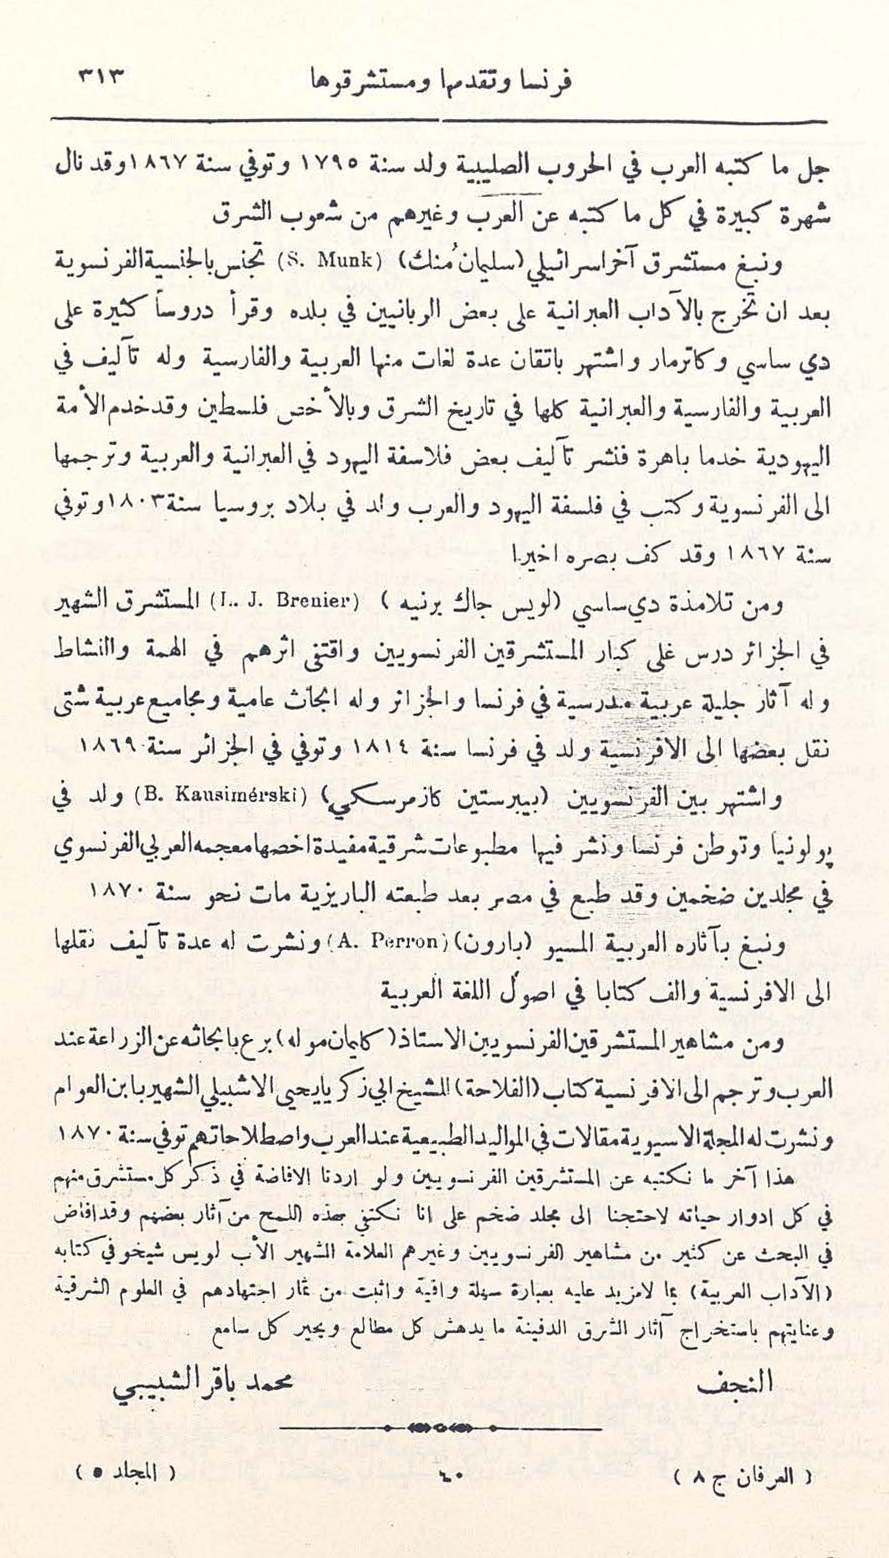 فرنسا وتقدمها ومستشرقوها ٣١٣
جل ما كتبه العرب في الحروب الصليبية ولد سنة ١٧٩٥ وتوفي سنة ١٨٦٧ وقد نال
شهرة كبيرة في كل ما كتبه عن العرب وغيرهم من شعوب الشرق
ونبغ مستشرق آخر اسرائيلي (سليمان مُنك) (S. Munk) تجنس بالجنسية الفرنسوية
بعد ان تخرج بالآداب العبرانية على بعض الربانيين في بلده وقرأ دروساً كثيرة على
دي ساسي وكاترمار واشتهر باتقان عدة لغات منها العربية والفارسية وله تآليف في
العربية والفارسية والعبرانية كلها في تاريخ الشرق وبالأخص فلسطين وقد خدم الأمة
اليهودية خدما باهرة فنشر تآليف بعض فلاسفة اليهود في العبرانية والعربية وترجمها
الى الفرنسوية وكتب في فلسفة اليهود والعرب ولد في بلاد بروسيا سنة ١٨٠٣ وتوفي
سنة ١٨٦٧ وقد كف بصره اخيرا
ومن تلامذة دي ساسي (لويس جاك برنيه) (L. J. Brenier) المستشرق الشهير
في الجزائر درس على كبار المستشرقين الفرنسويين واقتفى اثرهم في الهمة والنشاط
وله آثار جليلة عربية مدرسية في فرنسا والجزائر وله ابحاث عامية ومجاميع عربية شتى
نقل بعضها الى الافرنسية ولد في فرنسا سنة ١٨١٤ وتوفي في الجزائر سنة ١٨٦٩
واشتهر بين الفرنسويين (بيبرستين كازمرسكي) (B. Kausimérski) ولد في
پولونيا وتوطن فرنسا ونشر فيها مطبوعات شرقية مفيدة اخصها معجمه العربي الفرنسوي
في مجلدين ضخمين وقد طبع في مصر بعد طبعته الباريزية مات نحو سنة ١٨٧٠
ونبغ بآثاره العربية المسيو (بارون) (A. Perron) ونشرت له عدة تآليف نقلها
الى الافرنسية والف كتابا في اصول اللغة العربية
ومن مشاهير المستشرقين الفرنسويين الاستاذ (كليمان موله) برع بابحاثه عن الزراعة عند
العرب وترجم الى الافرنسية كتاب (الفلاحة) للشيخ ابي زكريا يحيى الاشبيلي الشهير بابن العوام
ونشرت له المجلة الاسيوية مقالات في المواليد الطبيعية عند العرب واصطلاحاتهم توفي سنة ١٨٧٠
هذا آخر ما نكتبه عن المستشرقين الفرنسويين ولو اردنا الافاضة في ذكر كل مستشرق منهم
في كل ادوار حياته لاحتجنا الى مجلد ضخم على انا نكتفي بهذه اللمح من آثار بعضهم وقد افاض
في البحث عن كثير من مشاهير الفرنسويين وغيرهم العلامة الشهير الأب لويس شيخو في كتابه
(الآداب العربية) بما لا مزيد عليه بعبارة سهلة وافية واثبت من ثمار اجتهادهم في العلوم الشرقية
وعنايتهم باستخراج آثار الشرق الدفينة ما يدهش كل مطالع ويحير كل سامع
النجف محمد باقر الشبيبي
(العرفان ج ٨) ٤٠ (المجلد ٥)